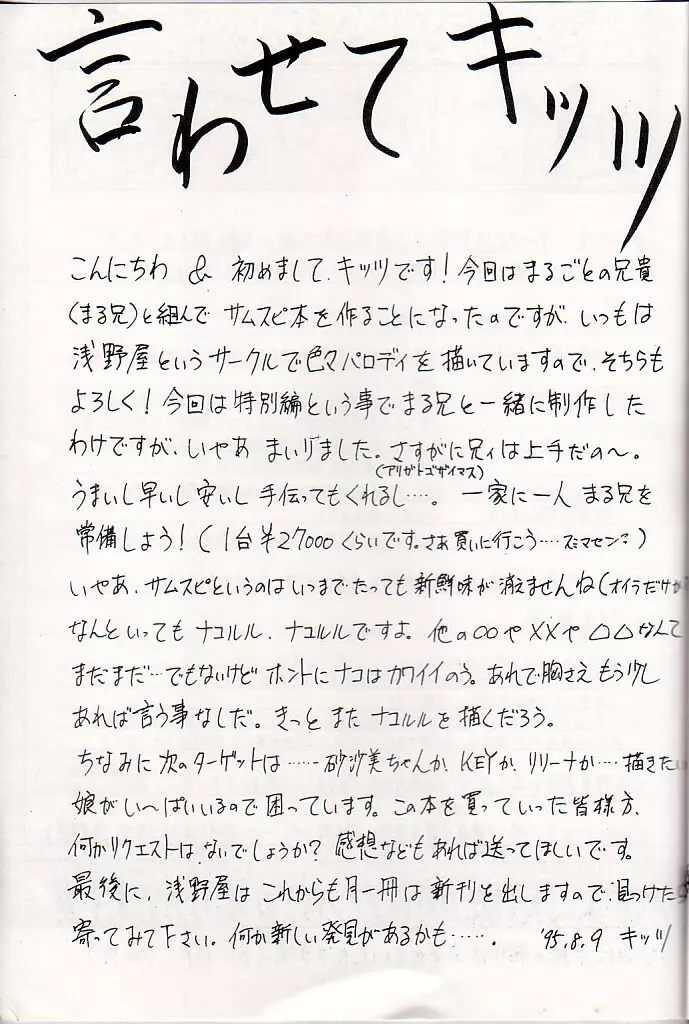 言わせてキッツ
こんにちわ & 初めまして、キッツです！今回はまるごとの兄貴
(まる兄)と組んで サムスピ本を作ることになったのですが、いつもは
浅野屋というサークルで色々パロディを描いていますので、そちらも
よろしく！今回は特別編という事でまる兄と一緒に制作した
わけですが、いやあ まいりました。さすがに兄ィは上手だの〜。
(アリガトゴザイマス)
うまいし早いし安いし 手伝ってもくれるし‥‥。一家に一人 まる兄を
常備しよう！(1台￥27000くらいです。さあ買いに行こう‥‥スミマセン？)
いやあ、サムスピというのはいつまでたっても新鮮味が消えませんね(オイラだけか
なんといっても ナコルル、ナコルルですよ。他の○○や××や△△なんて
まだまだ…でもないけど ホントにナコはカワイイのう。あれで胸さえもう少し
あれば言う事なしだ。きっと また ナコルルを描くだろう。
ちなみに次のターゲットは‥‥‥砂沙美ちゃんか、KEYか、リリーナか‥‥描きたい
娘がい〜ぱいいるので困っています。この本を買っていった皆様方、
何かリクエストは、ないでしょうか？感想などもあれば送ってほしいです。
最後に、浅野屋はこれからも月一冊は新刊を出しますので、見つけたら
寄ってみて下さい。何か新しい発見があるかも‥‥‥。'95.8.9 キッツ